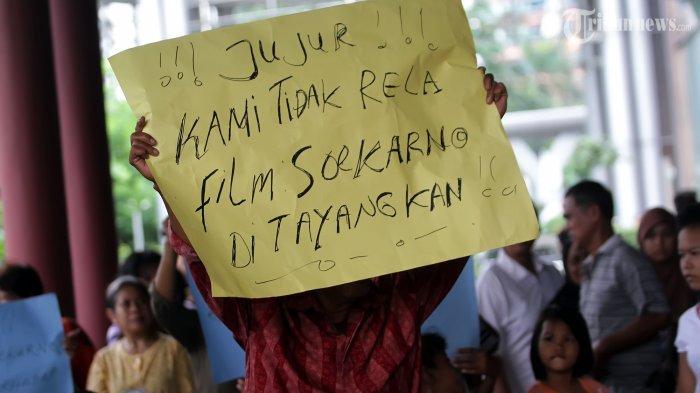 Tribunnews.com
!!! JUJUR !!!
KAMI TIDAK RELA
FILM SOEKARNO
DI TAYANGKAN !!